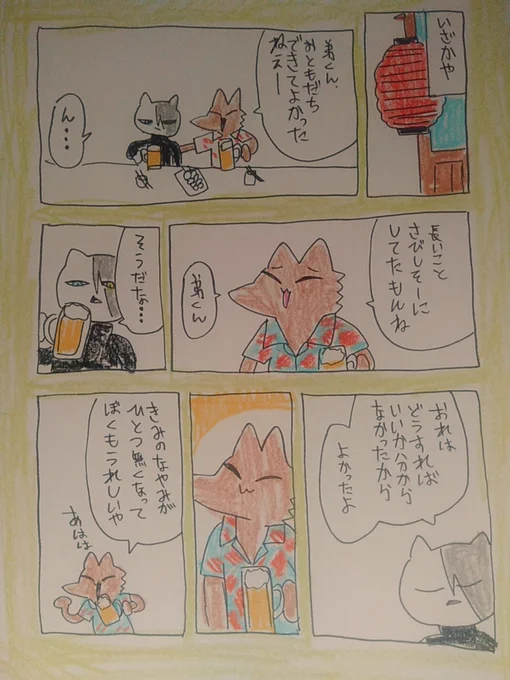 いざかや
弟くん、
おともだち
できてよかった
ねえー
ん・・・
長いこと
さびしそーに
してたもんね
弟くん
そうだな・・・
おれは
どうすれば
いいか分から
なかったから
よかったよ
きみのなやみが
ひとつ無くなって
ぼくもうれしいや
あはは